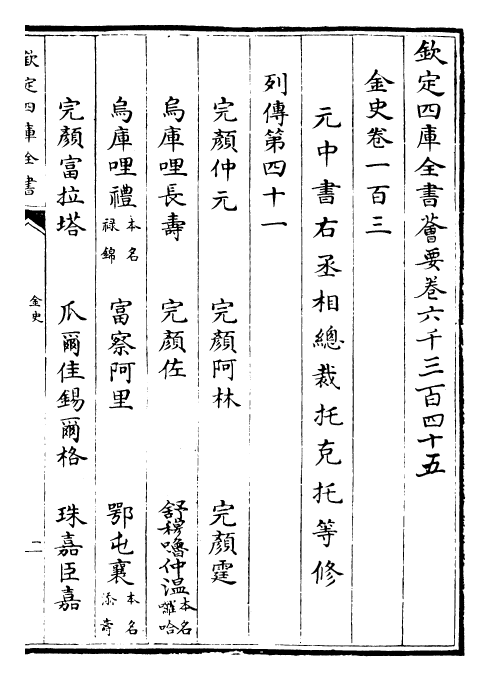 欽定四庫全書薈要卷六千三百四十五
金史卷一百三
元中書右丞相總裁托克托等修
列傳第四十一
完顏仲元 完顏阿林 完顏霆
烏庫哩長壽 完顏佐 舒穆嚕仲温本名
烏庫哩禮本名祿錦 富察阿里 鄂屯襄本名添壽
完顏富拉塔 瓜爾佳錫爾格 珠嘉臣嘉
欽定四庫全書
金史
二